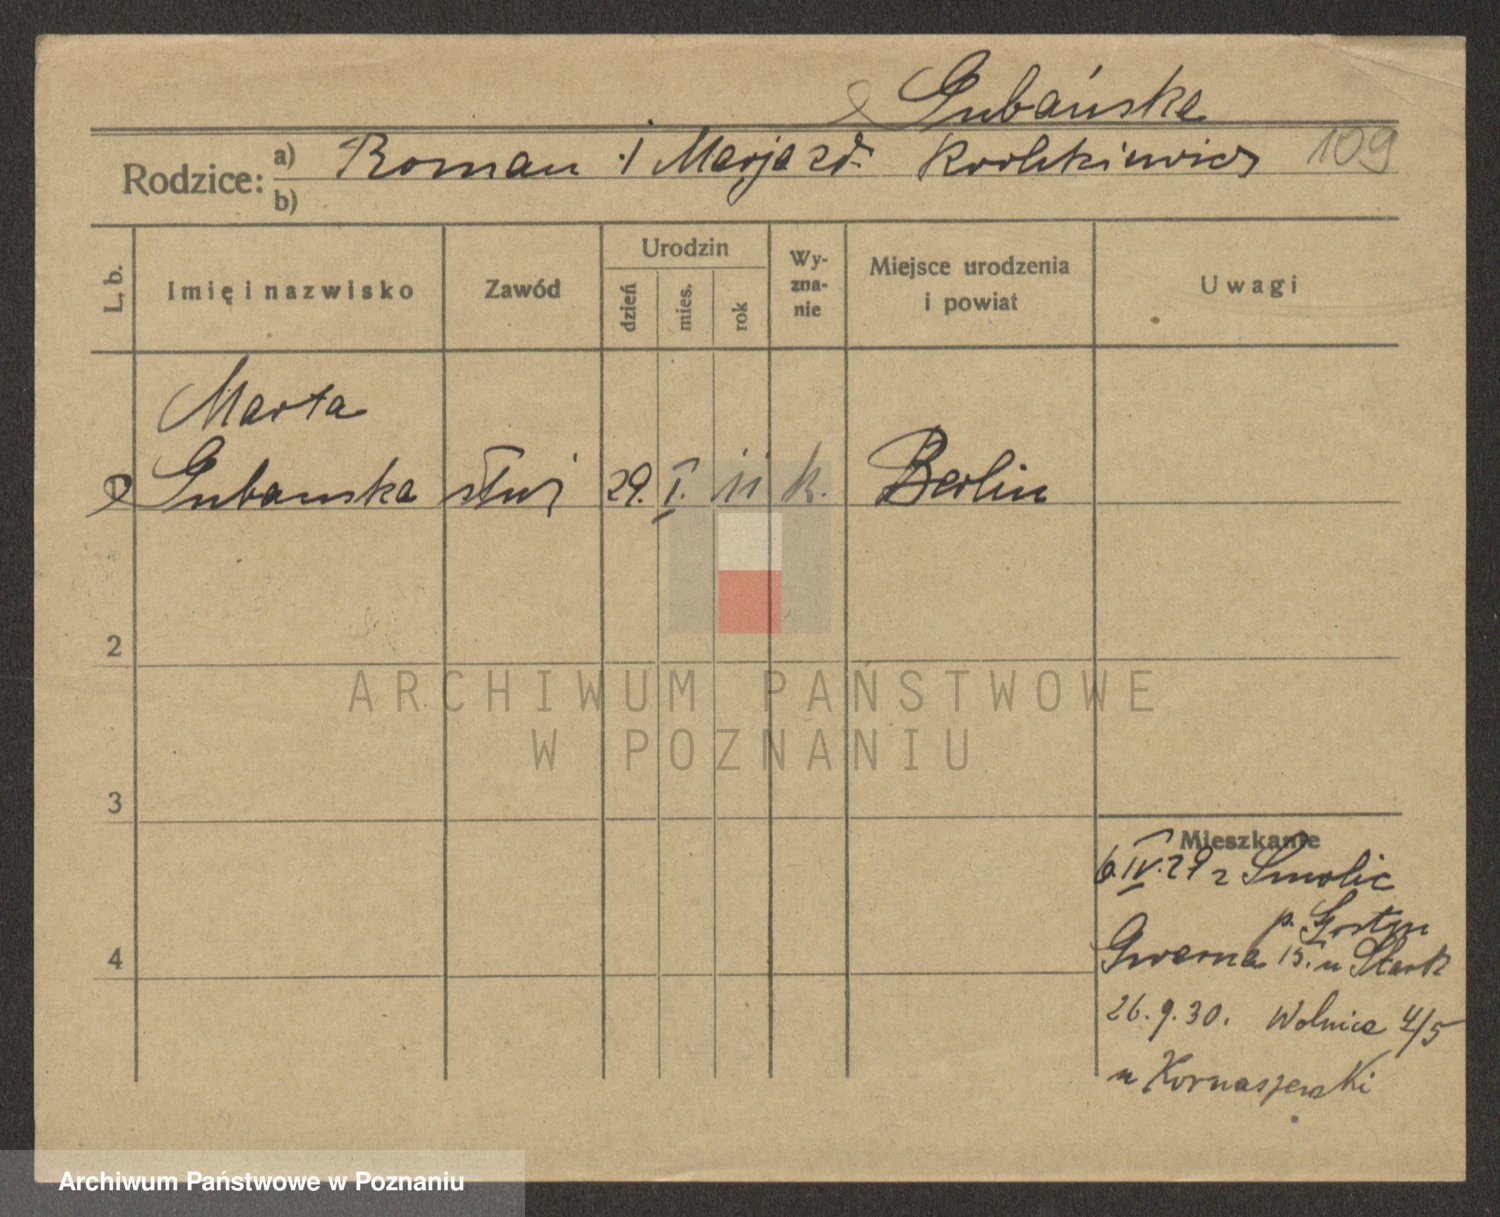 Gubańska
Rodzice: a) Roman i Marja zd. 109
b)
L. b. Imię i nazwisko Zawód Urodzin dzień mies. rok Wy-zna-nie Miejsce urodzenia i powiat Uwagi
Marta
Gubanska służ 29. I. 11 k. Berlin
2
3
Mieszkanie
6.IV.29 z Smolic
p. Gostyn
4 Gwarna 15. u Stark
26.9.30. Wolnica 4/5
u Kornaszewski
ARCHIWUM PAŃSTWOWE
W POZNANIU
Archiwum Państwowe w Poznaniu